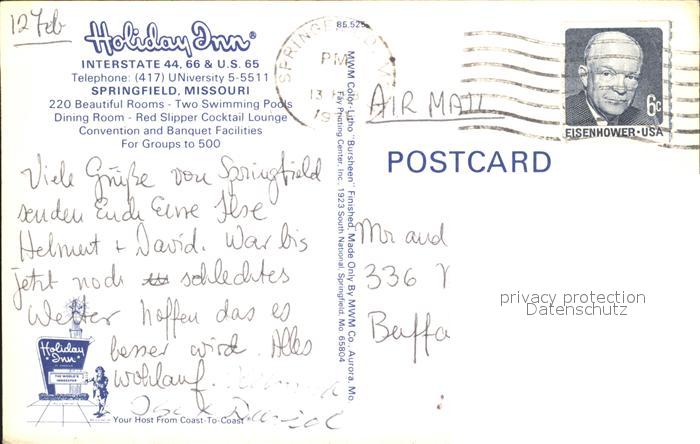 12 Feb
Holiday Inn®
INTERSTATE 44, 66 & U.S. 65
Telephone: (417) UNiversity 5-5511
SPRINGFIELD, MISSOURI
220 Beautiful Rooms - Two Swimming Pools
Dining Room - Red Slipper Cocktail Lounge
Convention and Banquet Facilities
For Groups to 500
Viele Grüße von Springfield
senden Euch Eure Ilse
Helmut + David. War bis
jetzt noch schlechtes
Wetter hoffen das es
besser wird. Alles
wohlauf.
Holiday Inn
THE WORLD'S INNKEEPER
Your Host From Coast-To-Coast
85.525
MWM Color-Litho "Bursheen" Finished, Made Only By MWM Co., Aurora, Mo.
Fay Printing Center, Inc., 1923 South National, Springfield, Mo 65804
PM
13
AIR MAIL
6c
EISENHOWER·USA
POSTCARD
Mr and
336
Buffa
privacy protection
Datenschutz